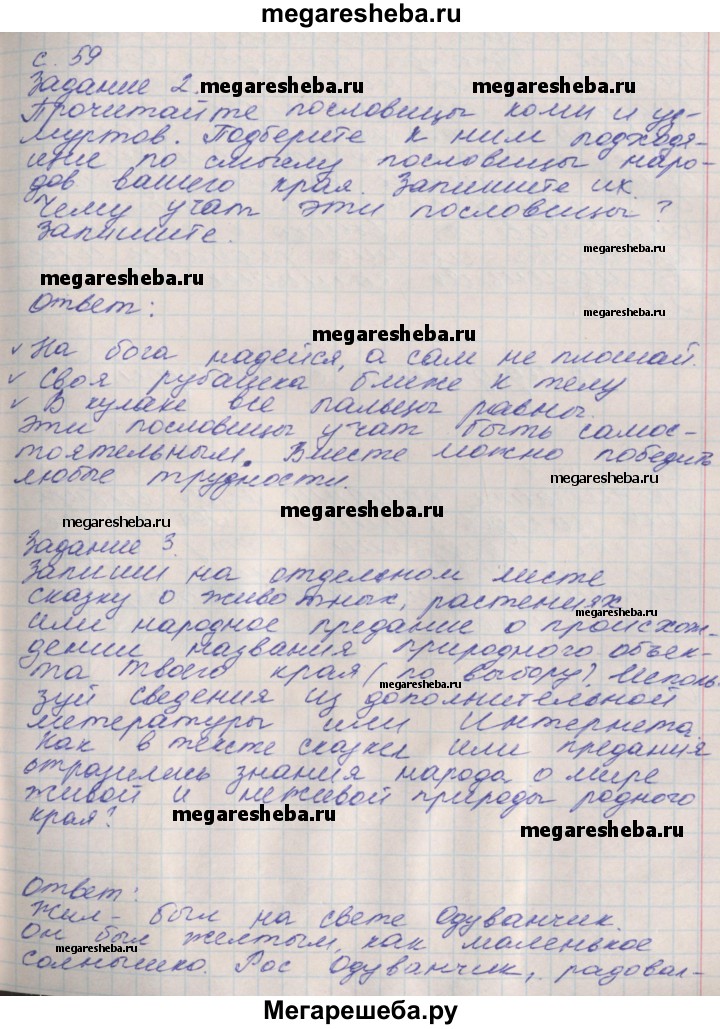 megaresheba.ru
с. 59
Задание 2. megaresheba.ru megaresheba.ru
Прочитайте пословицы коми и уд-
муртов. Подберите к ним подходя-
щие по смыслу пословицы наро-
дов вашего края. Запишите их.
Чему учат эти пословицы?
Запишите.
megaresheba.ru
megaresheba.ru
Ответ:
megaresheba.ru
megaresheba.ru
✓ На бога надейся, а сам не плошай.
✓ Своя рубашка ближе к телу
✓ В кулаке все пальцы равны.
Эти пословицы учат быть самос-
тоятельным. Вместе можно победить
любые трудности.
megaresheba.ru
megaresheba.ru
megaresheba.ru
Задание 3.
Запиши на отдельном листе
сказку о животных, растениях
megaresheba.ru
или народное предание о происхож-
дении названия природного объек-
та твоего края (по выбору). Исполь-
megaresheba.ru
зуй сведения из дополнительной
литературы или Интернета.
Как в тексте сказки или предания
отразились знания народа о мире
живой и неживой природы родного
края?
megaresheba.ru
megaresheba.ru
Ответ:
Жил-был на свете Одуванчик.
Он был желтым, как маленькое
megaresheba.ru
солнышко. Рос Одуванчик, радовал-
Мегарешеба.ру